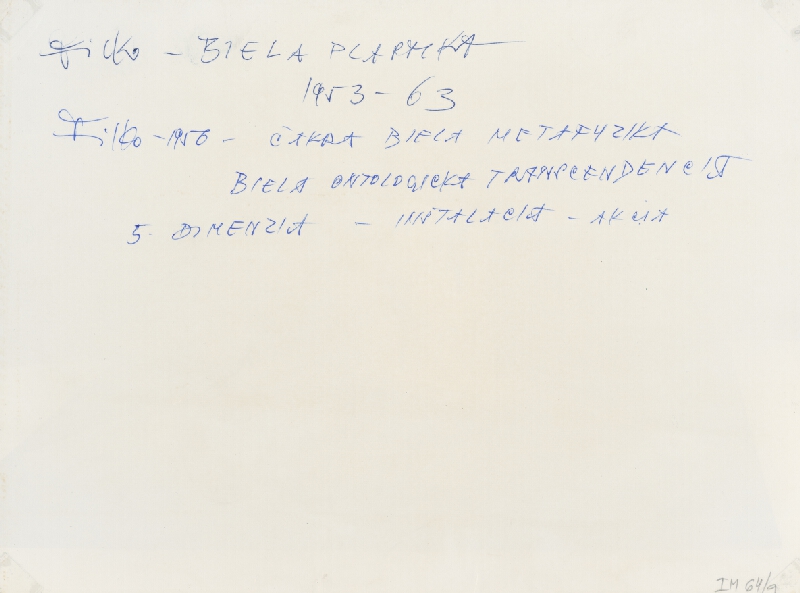 Filko – BIELA PLASTIKA
1953 – 63
Filko – 1956 – ČAKRA BIELA METAFYZIKA
BIELA ONTOLOGICKA TRANSCENDENCIA
5. DIMENZIA – INŠTALACIA – AKCIA
IM 64/a